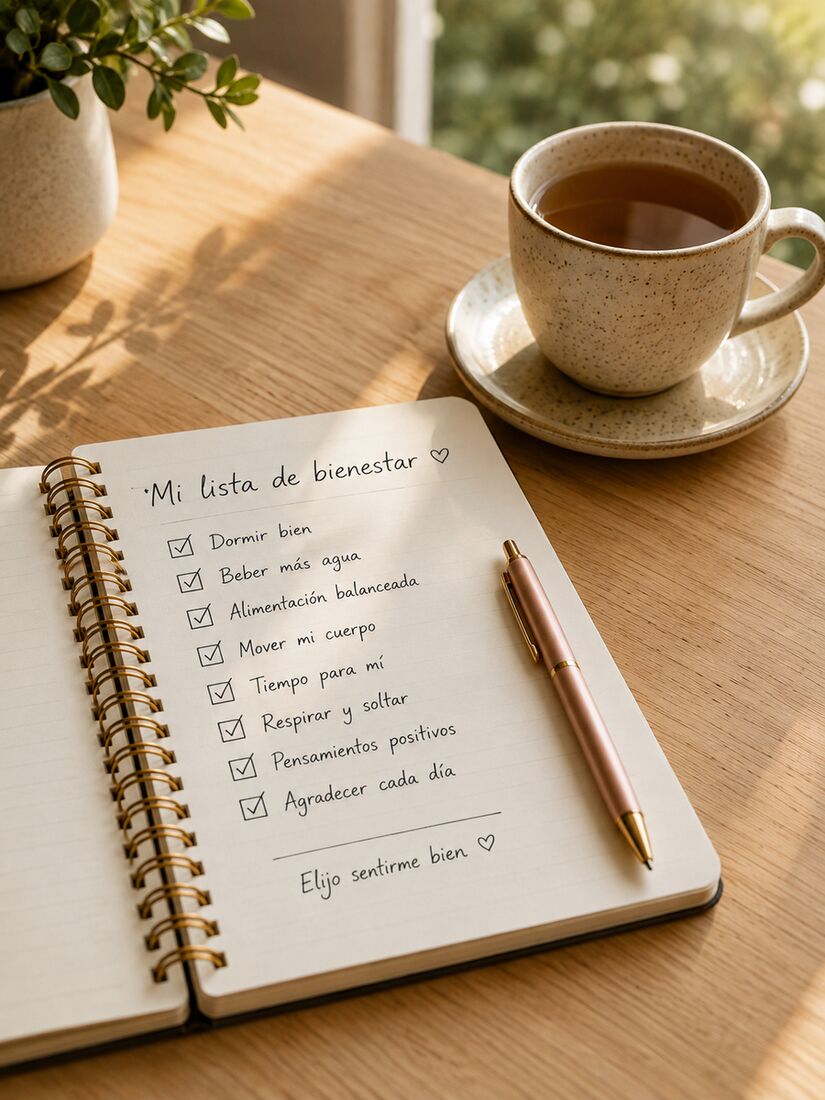 Mi lista de bienestar ♡
☑ Dormir bien
☑ Beber más agua
☑ Alimentación balanceada
☑ Mover mi cuerpo
☑ Tiempo para mí
☑ Respirar y soltar
☑ Pensamientos positivos
☑ Agradecer cada día
Elijo sentirme bien ♡